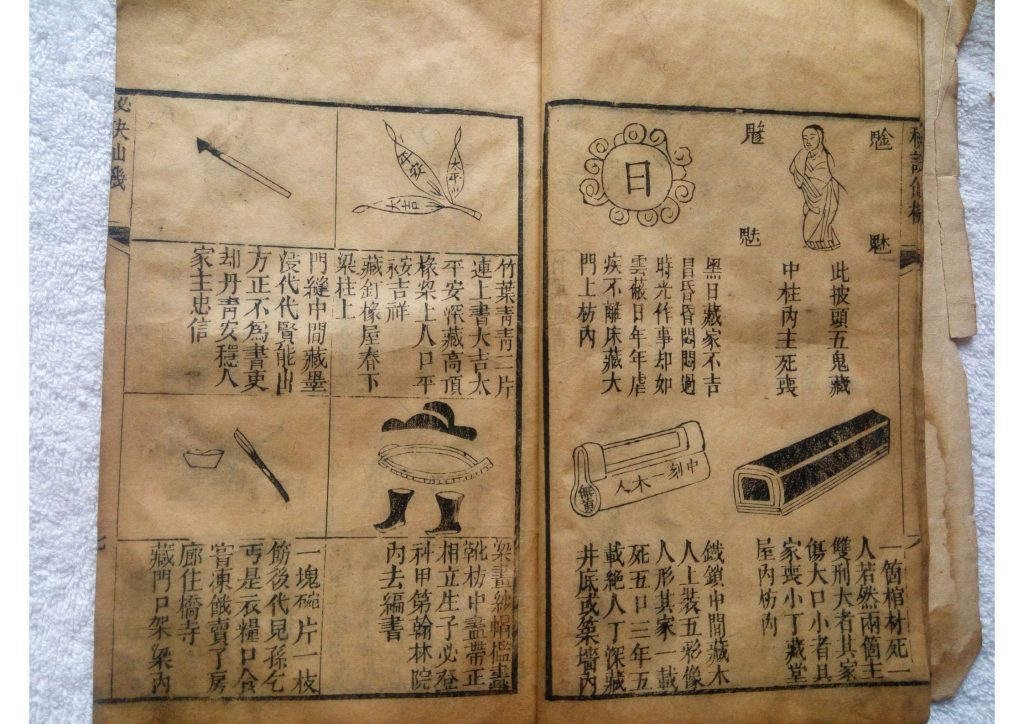 秘訣仙機
此披頭五鬼藏
中柱內主死喪
日
黑日藏家不吉
昌昏昏悶悶過
時光作事却如
雲蔽日年年虐
疾不離床藏大
門上枋內
一箇棺材死一
人若然兩箇主
雙刑大者其家
傷大口小者具
家喪小丁藏堂
屋內枋內
中刻一木人
鐵鎖中間藏木
人上裝五彩像
人形其家一載
死五口三年五
載絕人丁深藏
井底或築墻內
太平
平安
大吉
竹葉青青二片
連上書大吉太
平安深藏高頂
椽梁上人口平
安吉祥
藏釘椽屋春下
梁柱上
門縫中間藏墨
浸代代賢能出
方正不為書吏
却丹青安穩人
家主忠信
梁畫紗帽檻畫
靴枋中畫帶正
相立生子必登
科甲第翰林院
內去編書
一塊碗片一枝
筯後代兒孫乞
丐是衣糧口食
嘗凍餓賣了房
廊住橋寺
藏門口架梁內
秘訣仙機